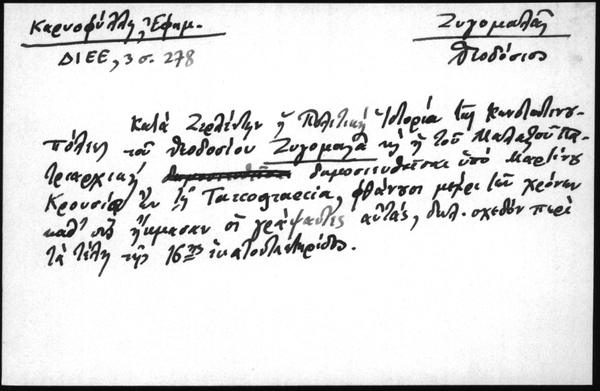 Καρυοφύλλη, Ἐφημ.
ΔΙΕΕ, 3 σ. 278
Ζυγομαλᾶς
Θεοδόσιος
Κατὰ Ζερλέντην ἡ Πολιτικὴ Ἱστορία τῆς Κωνσταντινου-
πόλεως τοῦ Θεοδοσίου Ζυγομαλᾶ κὴ ἡ τοῦ Μαλαξοῦ Πα-
τριαρχικὴ δημοσιευθεῖσαι ὑπὸ Μαρτίνου
Κρουσίου ἐν τῇ Turcograecia, φθάνουσι μέχρι τῶν χρόνων
καθ' οὓς ἤκμασαν οἱ γράψαντες αὐτάς, δηλ. σχεδὸν περὶ
τὰ τέλη τῆς 16ης ἑκατονταετηρίδος.